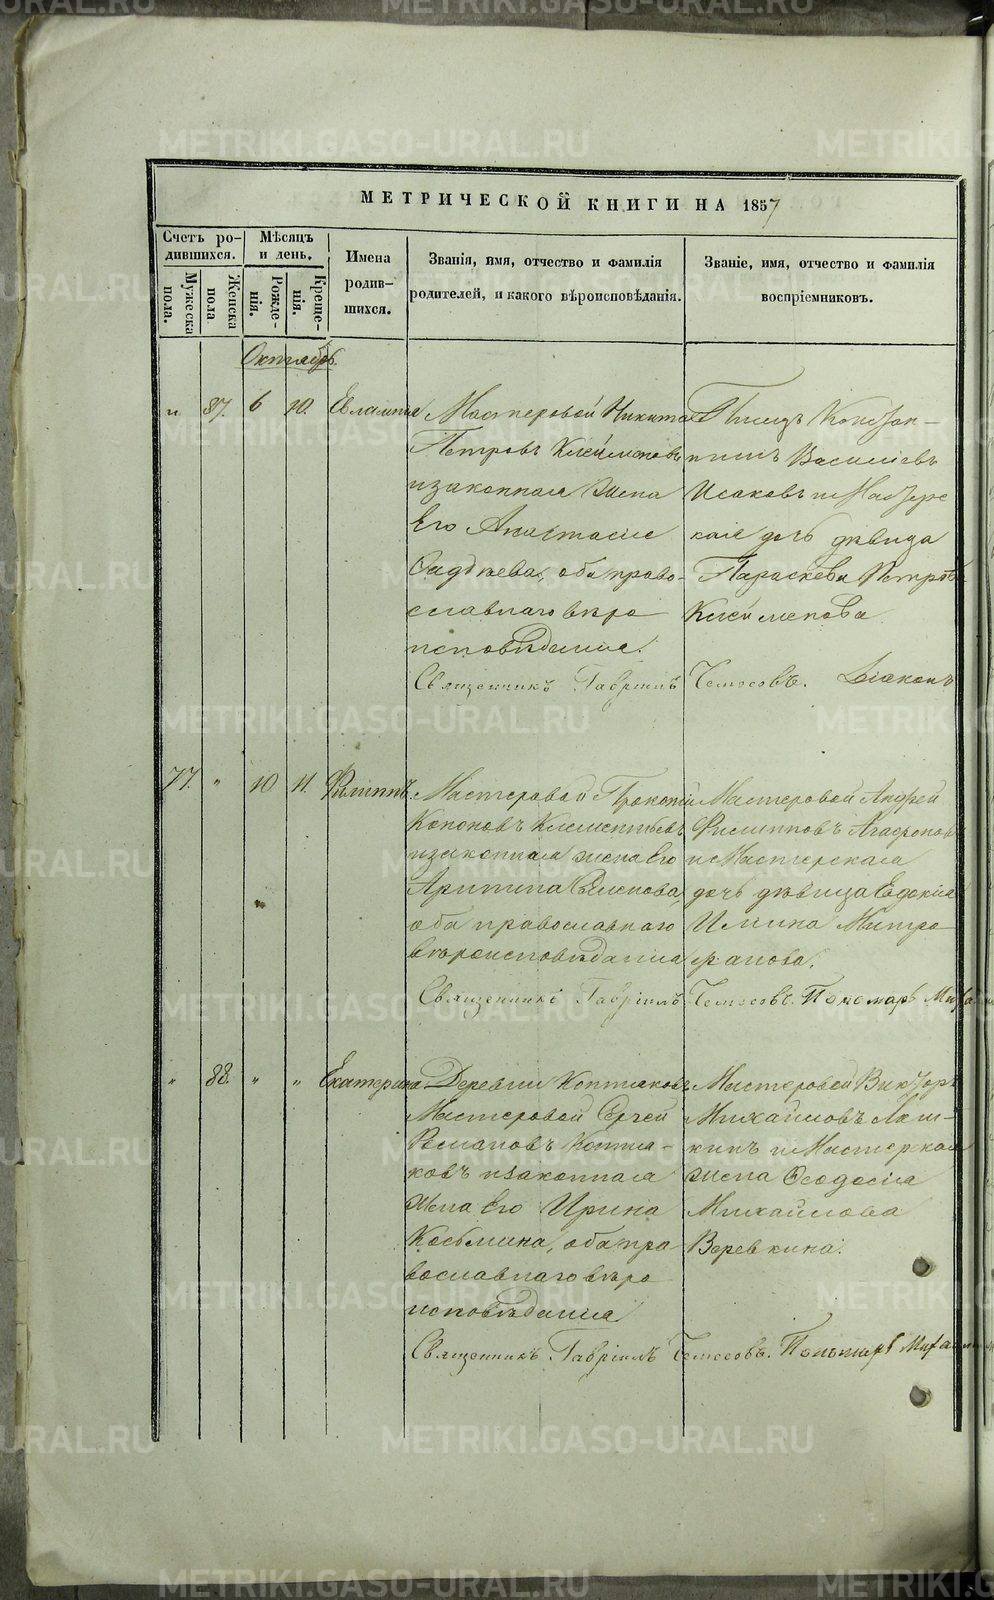 МЕТРИЧЕСКОЙ КНИГИ НА 1857
Счетъ ро-
дившихся.
Мужеска
пола.
Женска
пола
Мѣсяцъ
и день.
Рожде-
нія.
Креще-
нія.
Имена
родив-
шихся.
Званія, имя, отчество и фамилія
родителей, и какого вѣроисповѣданія.
Званіе, имя, отчество и фамилія
воспріемниковъ.
Октябрь
" 87. 6 10. Евлампія
Мастеровой Никита
Петровъ Клейменовъ
и законная жена
Его Анастасія
оба право-
славнаго вѣро
исповѣданія.
Писецъ Констан-
тинъ Василіевъ
Исаковъ и Мастерс
кая дочь дѣвица
Параскева Петрова
Клейменова
Священникъ Гавріилъ Діаконъ
77. " 10 11. Филиппъ.
Мастеровой Прокопій
Кононовъ Клементьевъ
и законная жена Его
оба православнаго
вѣроисповѣданія
Мастеровой Андрей
Филипповъ Агафоновъ
и Мастерская
дочь дѣвица Евдокія
Ильина Митро
фанова.
Священникъ Гавріилъ Пономарь
" 88. " " Екатерина
Деревни Коптяковъ
Мастеровой Сергей
Романовъ Коптя-
ковъ и законная
жена Его Ирина
Косьмина, оба пра
вославнаго вѣро
исповѣданія
Мастеровой Викторъ
Михайловъ
и Мастерская
жена Феодосія
Михайлова
Веревкина.
Священникъ Гавріилъ Пономарь
METRIKI.GASO-URAL.RU